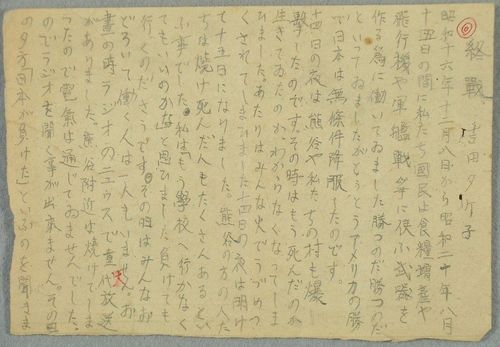 ⑥
終戰 吉田夕ケ子
昭和十六年十二月八日から昭和二十年八月
十五日の間に私たち國民は食糧増産や
飛行機や軍艦戰爭に使ふ武器を
作る爲に働いてゐました勝つのだ勝つのだ
といってゐましたがとうとうアメリカの勝
で日本は無條件降服したのです。
十四日の夜は熊谷や私たちの村も爆
撃したのです。その時はもう死んだのか
生きてゐたのかわからなくなってしま
ひました。あたりはみんな火でうめつ
くされてしまひました十四日の夜は明け
て十五日になりました。熊谷の方の人た
ちは焼け死んだ人もたくさんあるとい
ふ事でした。私は「もう學校へ行かなく
てもいいのかな」と思ひました負けても
行くのださうです。その日はみんなお
どろいて働く人は一人もいません。お
晝の時ラジオのニュウスで重大放送
がありました。熊谷附近は焼けてしま
ったので電氣は通じてゐませんでした。
のでラジオを聞く事が出來ません。その日
の夕方「日本が負けた」といふのを聞きま